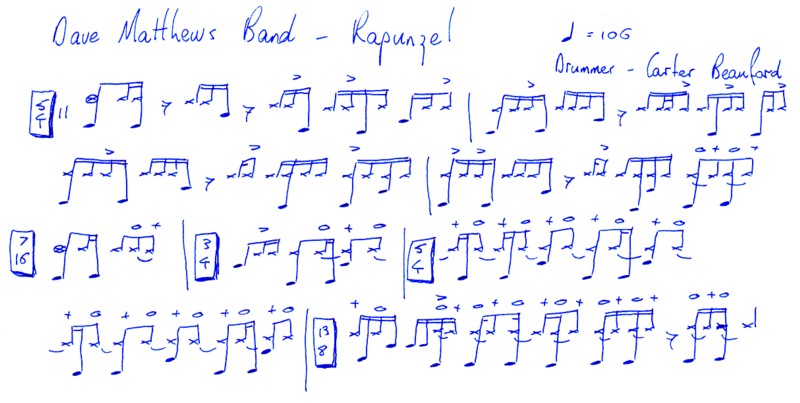 Dave Matthews Band - Rapunzel
♩ = 106
Drummer - Carter Beauford
5/4
7/16
3/4
5/4
13/8